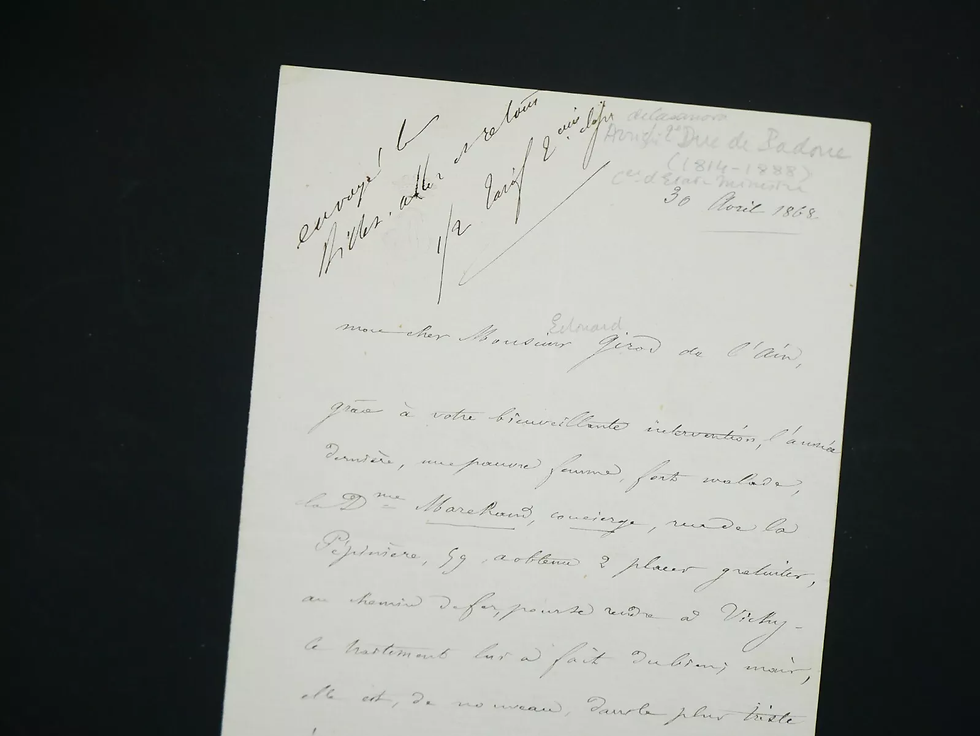 envoyé le
Billet aller et retour
1/2 Tarif 2e
de Casanova
Arrighi 2e Duc de Padoue
(1814-1888)
Cer d'Etat - Ministre
30 Avril 1868
mon cher Monsieur Girod de l'Ain,
Edouard
grâce à votre bienveillante intervention, l'année
dernière, une pauvre femme, fort malade,
la Dme Marchand, concierge, rue de la
Pépinière, 59, a obtenu 2 places gratuites,
au chemin de fer, pour se rendre à Vichy -
le traitement lui a fait du bien; mais,
elle est, de nouveau, dans le plus triste